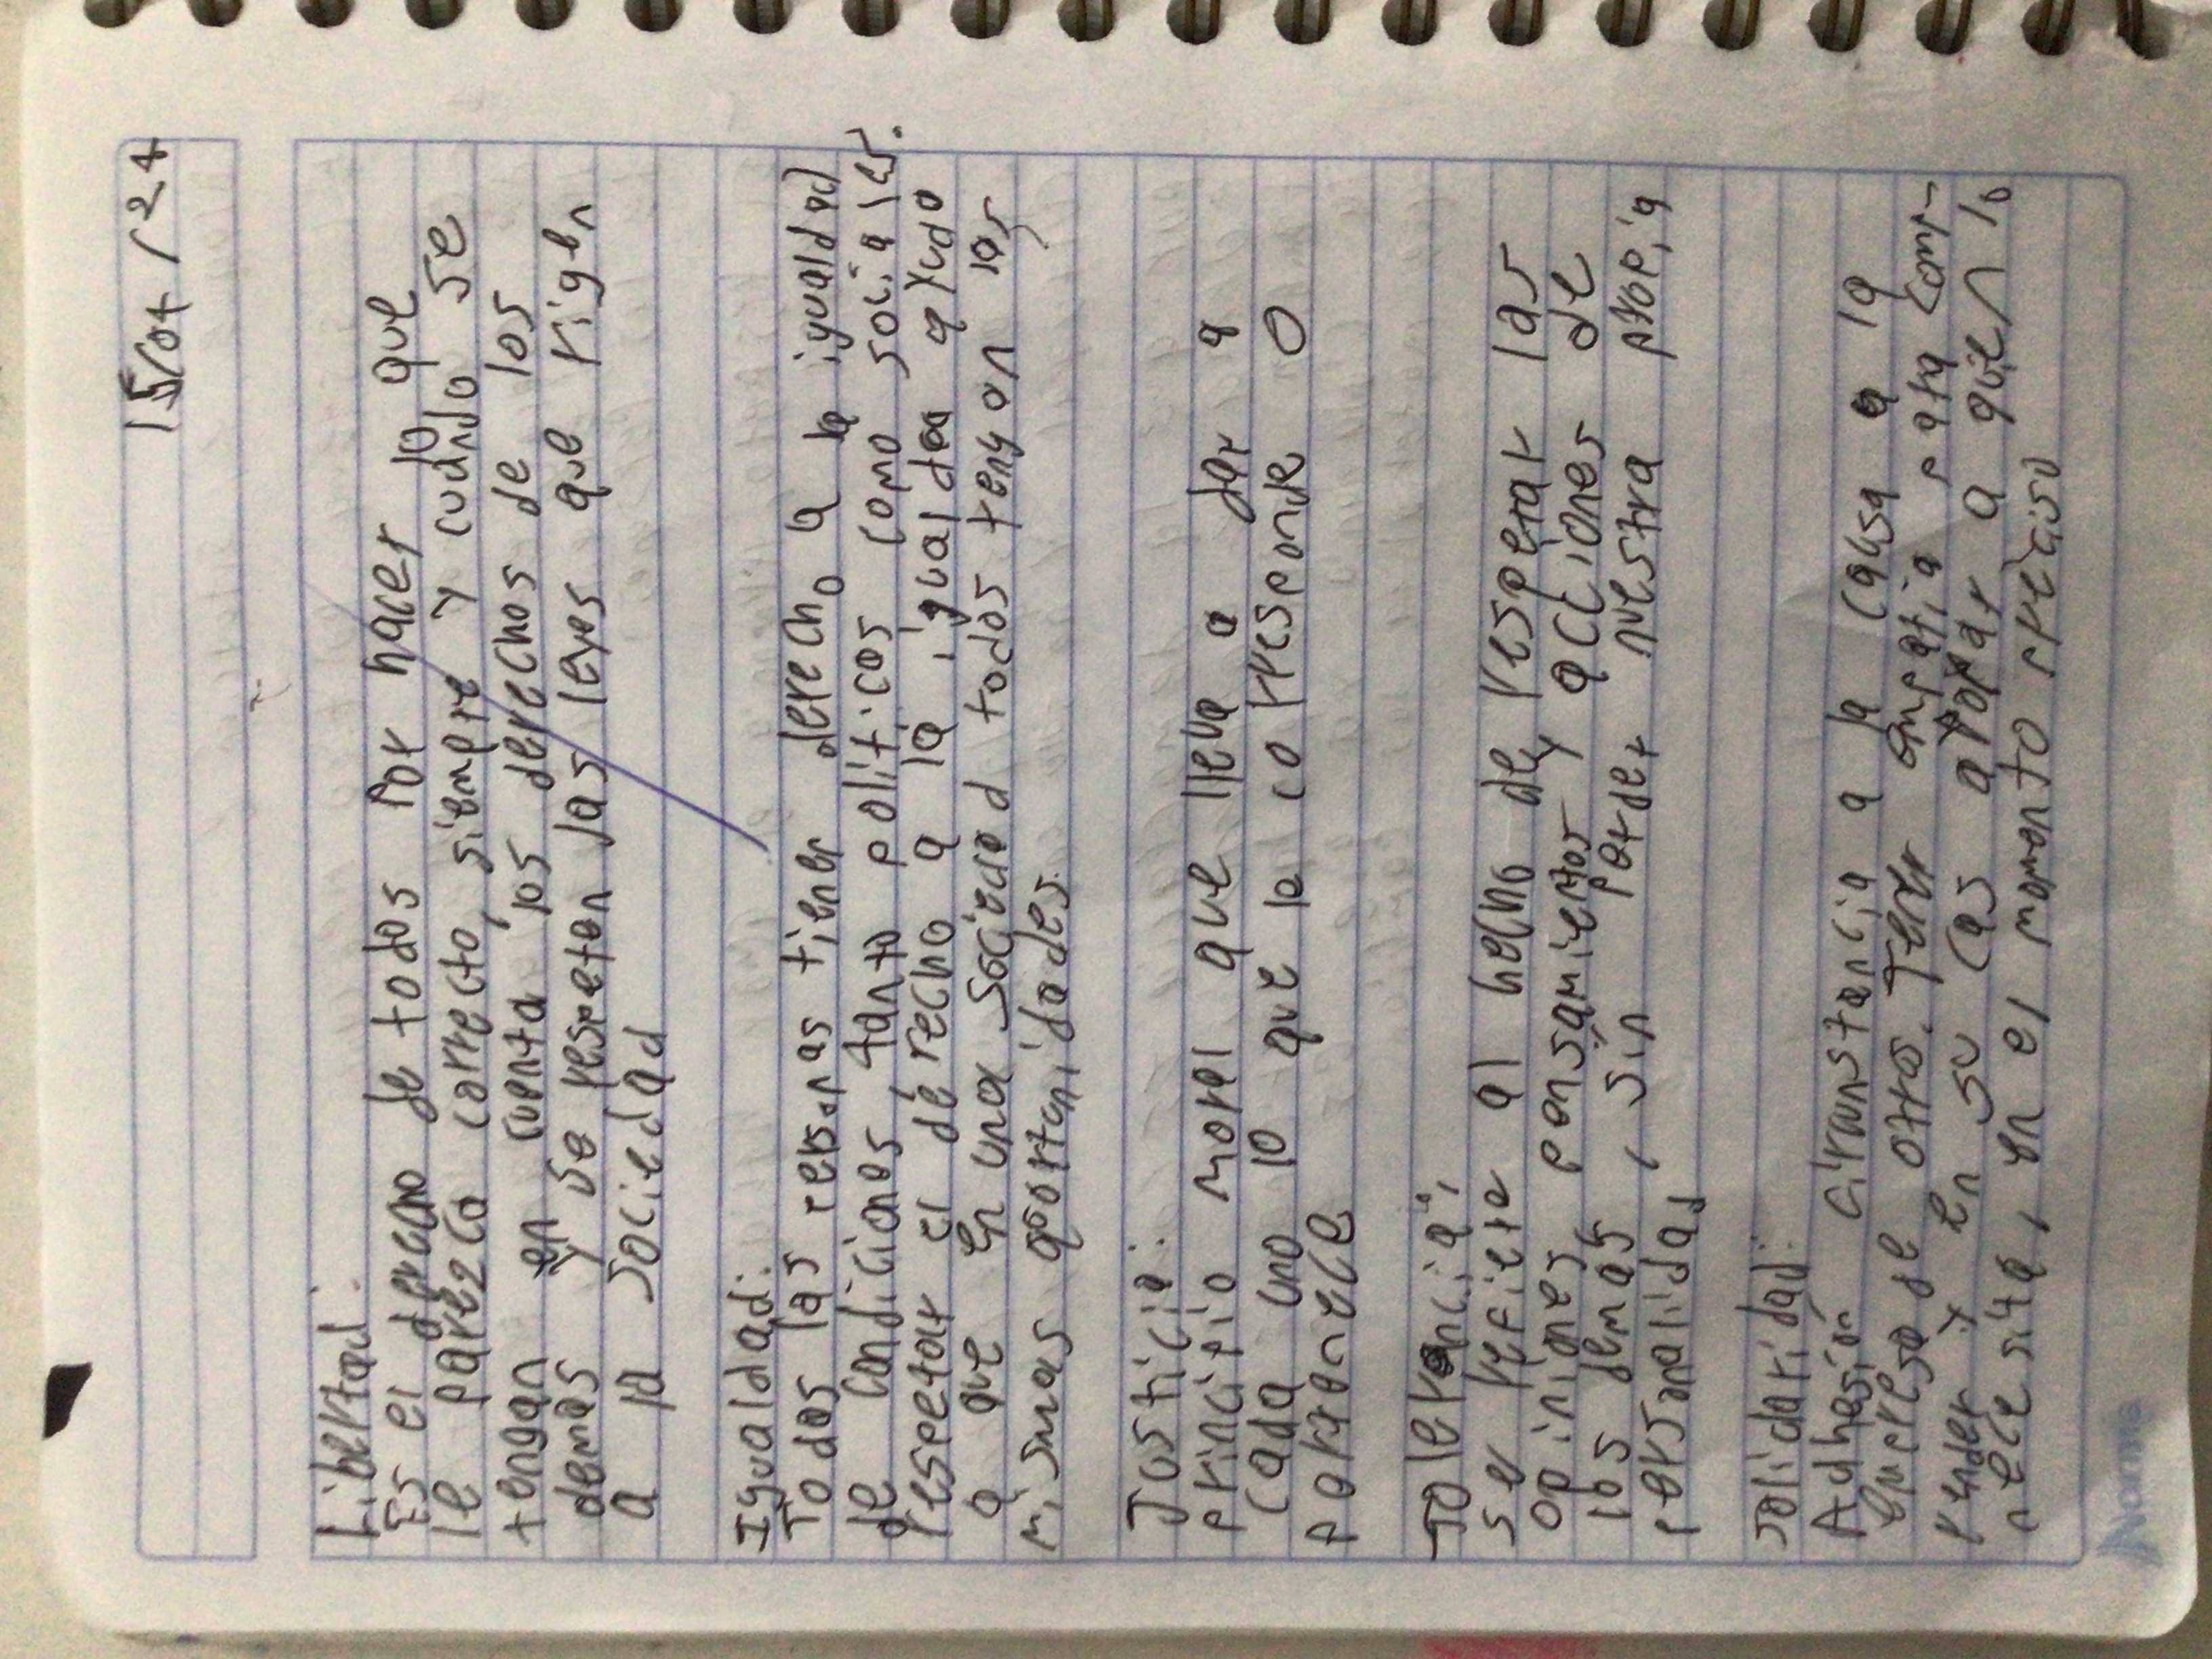 15/07/24
Libertad:
Es el derecho de todos por hacer lo que
le parezca correcto, siempre y cuando se
tengan en cuenta los derechos de los
demas y se respeten las leyes que rigen
a la sociedad
Igualdad:
Todas las personas tiene derecho a la igualdad
de condiciones tanto politicas como sociales.
respetar el derecho a la igualdad ayudo
a que en una sociedad todos tengan las
mismas oportunidades.
Justicia:
principio moral que lleva a dar a
cada uno lo que le corresponde o
pertenece
Tolerancia:
se refiere al hecho de respetar las
opiniones pensamientos y acciones de
los demas, sin perder nuestra propia
personalidad
solidaridad:
Adhesión circunstancia a la causa a la
empresa de otros. Tener empatia para comp-
render y en su cas apoyar a quien lo
necesita, en el momento preciso
Norma